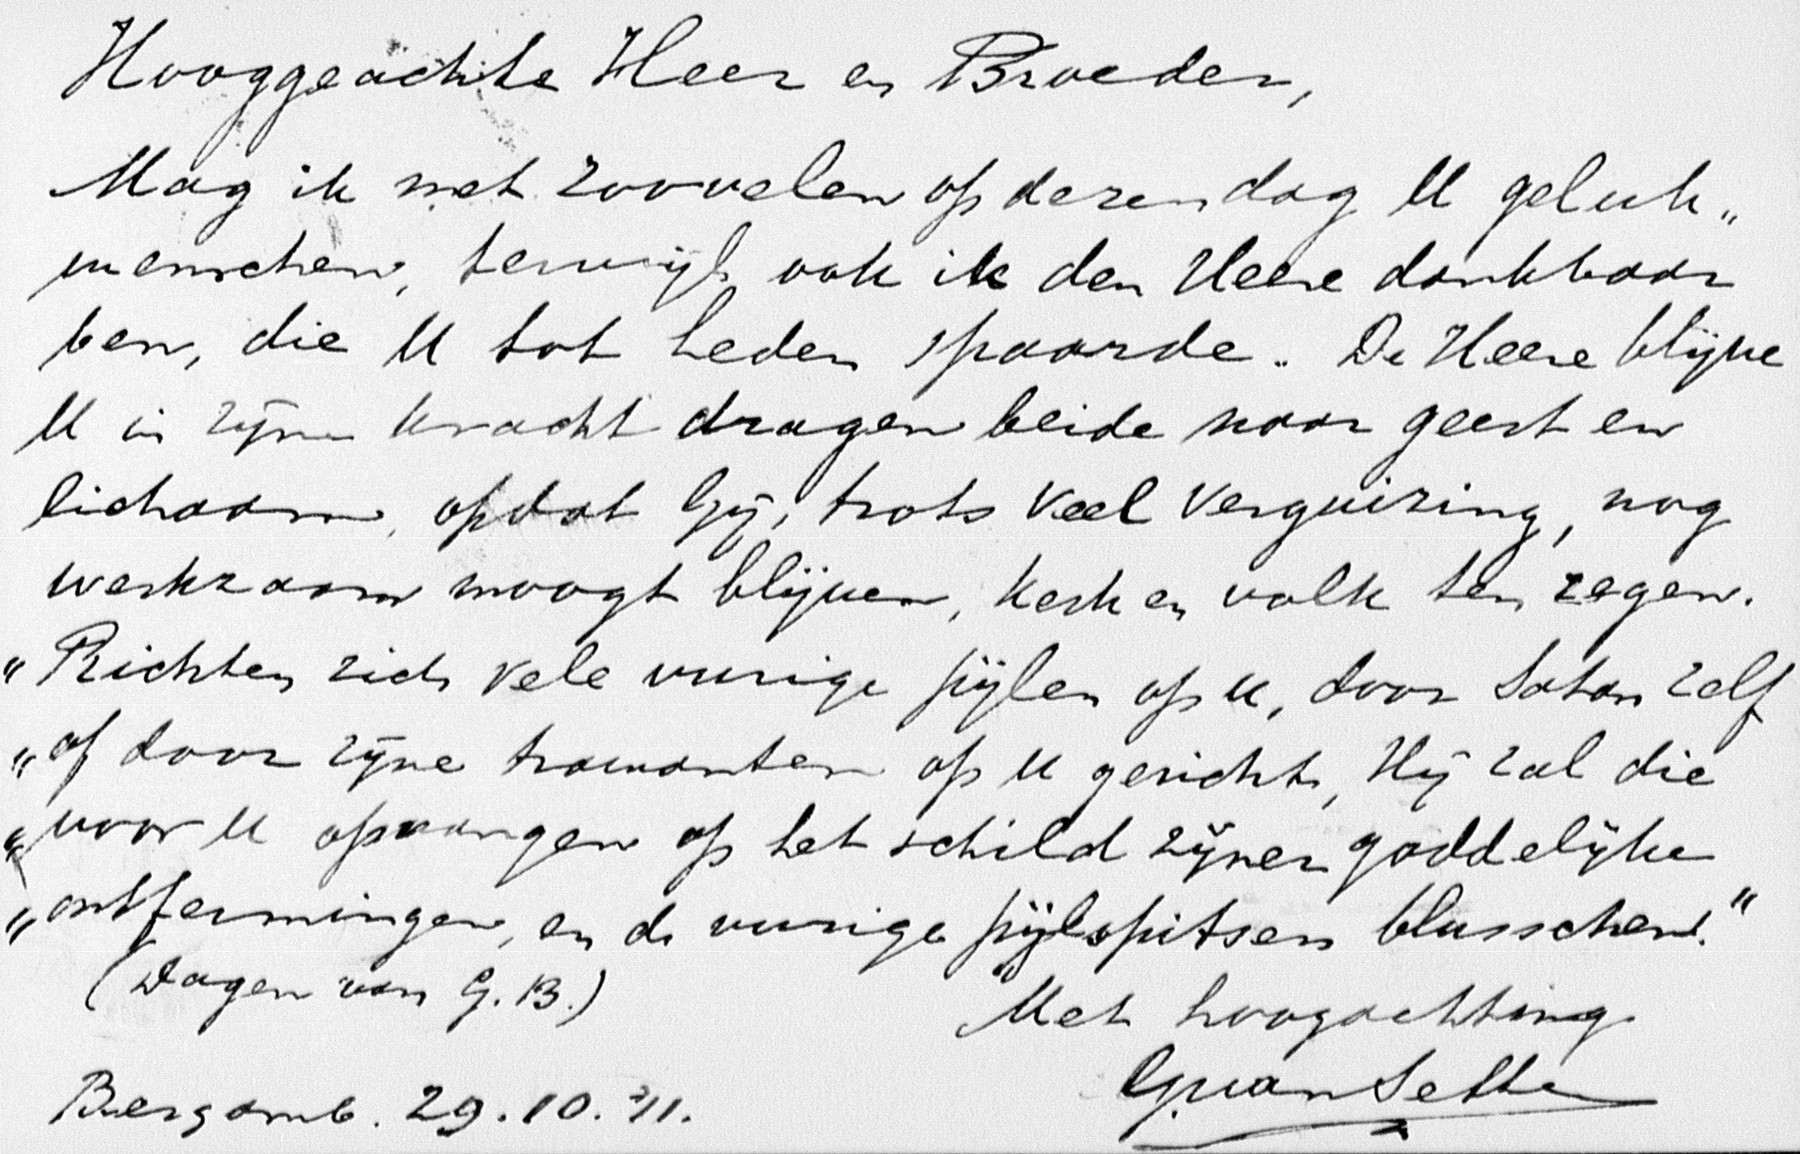 Hooggeachte Heer en Broeder,
Mag ik met zoovelen op dezen dag U geluk„
wenschen, terwijl ook ik den Heere dankbaar
ben, die U tot heden spaarde. De Heere blijve
U in zijne kracht dragen beide naar geest en
lichaam, opdat Gij, trots veel verguizing, nog
werkzaam moogt blijven, kerk en volk ten zegen.
„Richten zich vele vurige pijlen op u, door Satan zelf
„of door zijne trawanten op u gericht, Hij zal die
„voor U opvangen op het schild zijner goddelijke
„ontfermingen, en de vurige pijlspitsen blusschen."
(Dagen van G. B.)
Met hoogachting
G. van
Bergamb. 29.10.'11.